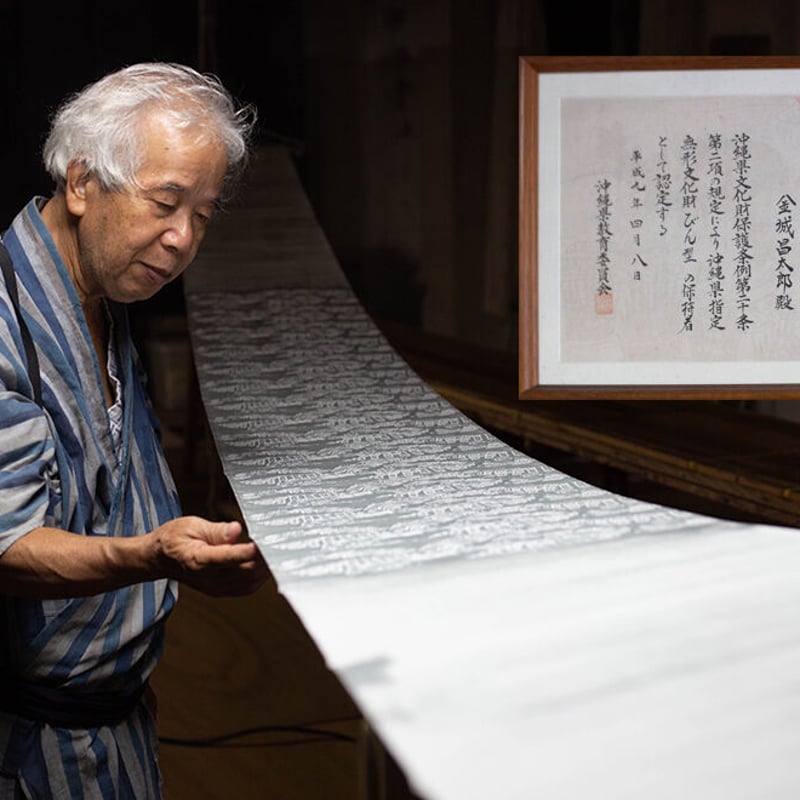 金城昌太郎殿
沖縄県文化財保護条例第二十条
第二項の規定により沖縄県指定
無形文化財「びん型」の保持者
として認定する
平成九年四月八日
沖縄県教育委員会